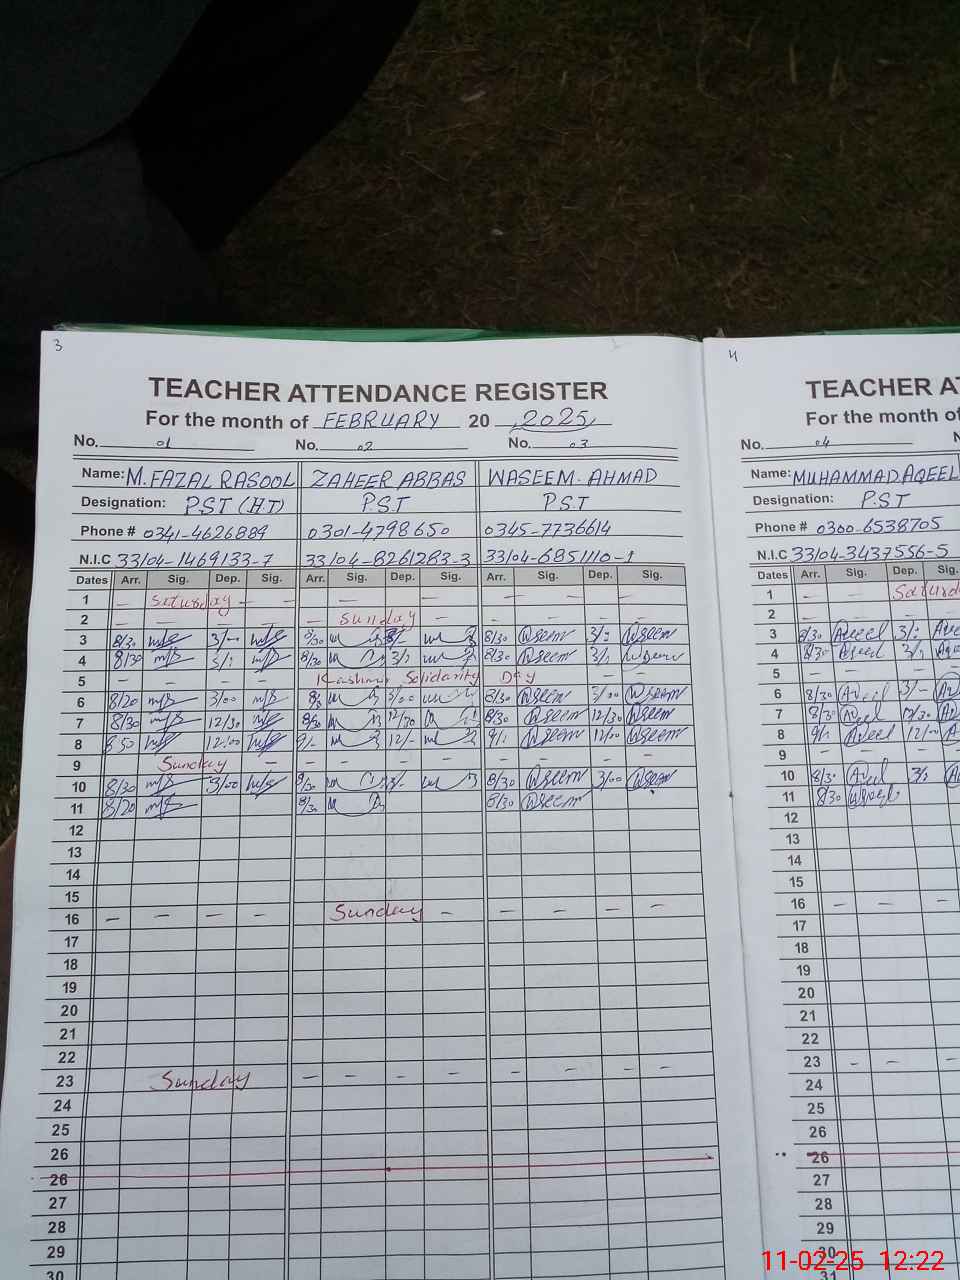 3
TEACHER ATTENDANCE REGISTER
For the month of FEBRUARY 20 2025
No. 01 No. 02 No. 03
Name: M. FAZAL RASOOL ZAHEER ABBAS WASEEM. AHMAD
Designation: P.S.T (H.T) P.S.T P.S.T
Phone # 0341-4626889 0301-4798650 0345-7736614
N.I.C 33104-1469133-7 33104-8261283-3 33104-6851110-1
Dates Arr. Sig. Dep. Sig. Arr. Sig. Dep. Sig. Arr. Sig. Dep. Sig.
1 — Saturday — — — — — — —
2 — — — — Sunday — — — — —
3 8/30 3/— 8/30 8/30 Wseem 3/: Wseem
4 8/30 3/: 8/30 3/: 8/30 Wseem 3/:
5 — — — — Kashmir Solidarity Day — —
6 8/20 3/00 3/00 8/30 Wseem 3/00 Wseem
7 8/30 12/30 8/30 12/30 8/30 Wseem 12/30 Wseem
8 8/50 12:00 9/- 12/- 9/: Wseem 12/00 Wseem
9 Sunday — — — — — — — — —
10 8/30 3/00 8/30 3/- 8/30 Wseem 3/00 Wseem
11 8/20 8/30 8/30 Wseem
12
13
14
15
16 — — — — Sunday — — — — —
17
18
19
20
21
22
23 Sunday — — — — — — — —
24
25
26
26
27
28
29
30
4
TEACHER AT
For the month of
No. 04
Name: MUHAMMAD AQEEL
Designation: P.S.T
Phone # 0300-6538705
N.I.C 33104-3437556-5
Dates Arr. Sig. Dep. Sig.
1 — — Saturd
2 — — — —
3 8/30 Aqeel 3/:
4 8/30 Aqeel 3/:
5 — — — —
6 8/30 Aqeel 3/—
7 8/30 Aqeel 12/30
8 9/: Aqeel 12/00
9 — — — —
10 8/30 Aqeel 3/:
11 8/30 Aqeel
12
13
14
15
16 — — — —
17
18
19
20
21
22
23 — — — —
24
25
26
26
27
28
29
30
31
11-02-25 12:22